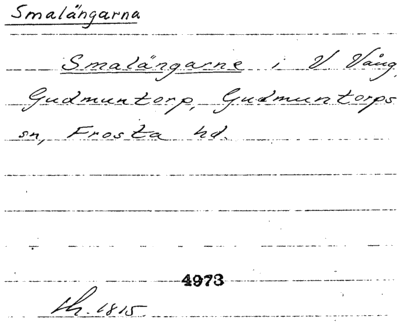 Smalängarna
Smalängarne i V Vång,
Gudmuntorp, Gudmuntorps
sn, Frosta hd.
4973
Lh. 1815.